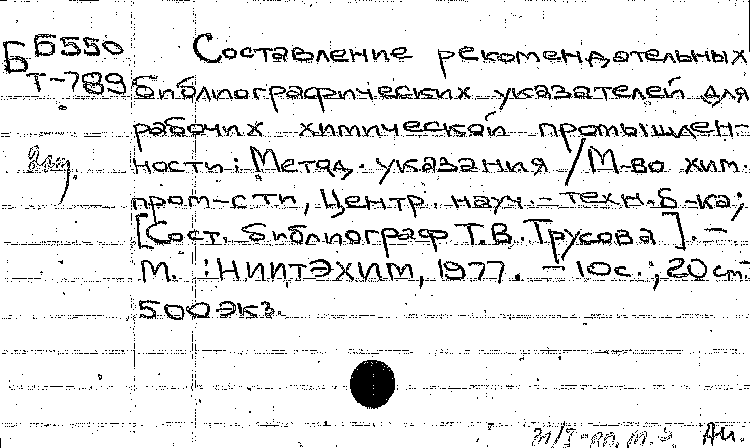 Б Б550 Составление рекомендательных
Т-789 библиографических указателей для
рабочих химической промышлен-
ности: Метод. указания / М-во хим.
пром-сти, Центр. науч.-техн. б-ка;
[Сост. библиограф Т.В. Трусова]. –
М. : НИИТЭХИМ, 1977. – 10 с. ; 20 см.
500 экз.